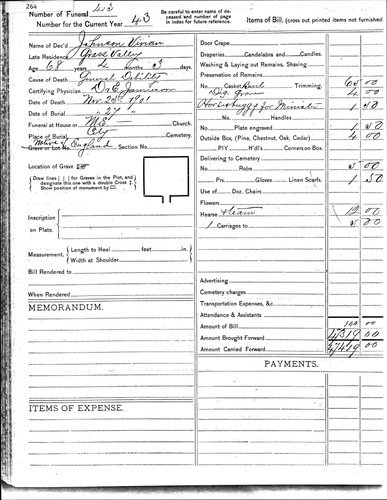 264
Number of Funeral 43
Number for the Current Year 43
Be careful to enter name of de-
ceased and number of page
in index for future reference.
Items of Bill, (cross out printed items not furnished
Name of Dec'd, Johnson Vivian
Late Residence Grass Valley
Age 68 years 4 months 3 days.
Cause of Death General Debility
Certifying Physician Dr C Jamison
Date of Death Nov 25th 1901
Date of Burial " 27 "
Funeral at House or M.E. Church.
Place of Burial City Cemetery.
Grave or Lot No. England Section No.
Location of Grave
Draw lines for Graves in the Plot, and
designate this one with a double Cross
Show position of monument by
Inscription
on Plate.
Measurement, Length to Heel feet in.
Width at Shoulder
Bill Rendered to
When Rendered
MEMORANDUM.
ITEMS OF EXPENSE.
Door Crape
Draperies Candelabra and Candles.
Washing & Laying out Remains, Shaving
Preservation of Remains
No. Casket Trimming. 65 00
Dig. Grave 4 00
Horse & buggy for Minister 1 50
No. Handles
No. Plate engraved 1 50
Outside Box, (Pine, Chestnut, Oak, Cedar) 4 00
D/C P/Y H'dl's Corners on Box.
Delivering to Cemetery
No. Robe 5 00
Prs. Gloves Linen Scarfs. 1 50
Use of Doz. Chairs
Flowers
Hearse & team 12 00
1 Carriages to 5 00
Advertising
Cemetery charges
Transportation Expenses, &c.
Attendance & Assistants
Amount of Bill 100 00
Amount Brought Forward 00
Amount Carried Forward 00
PAYMENTS.